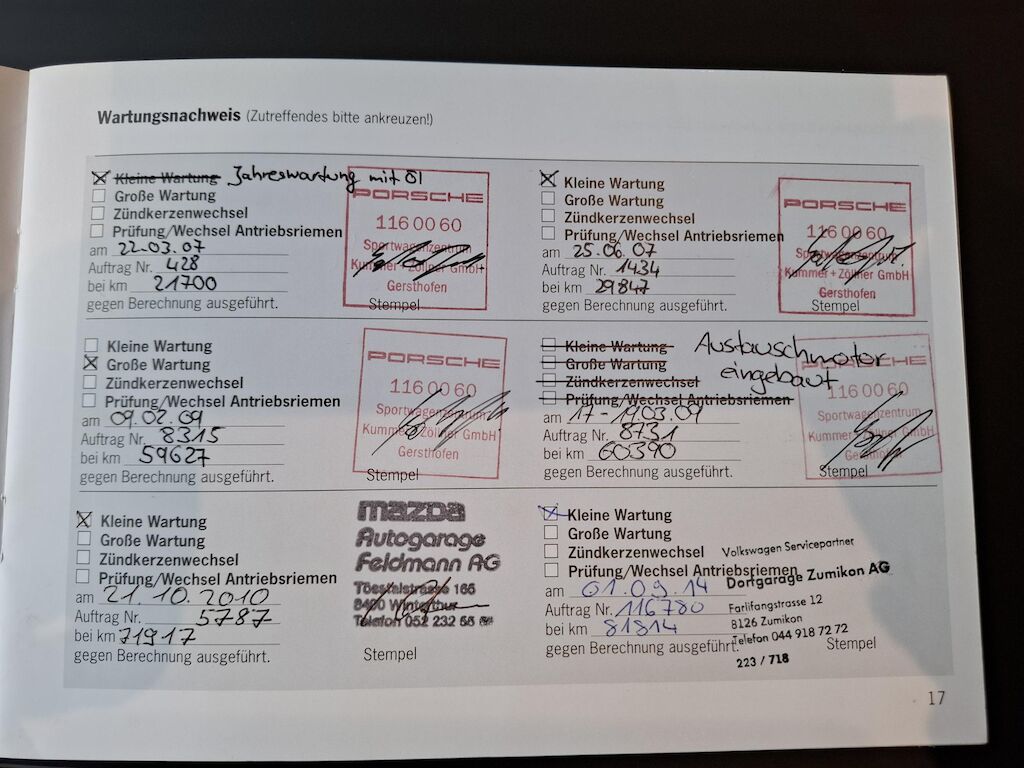 Wartungsnachweis (Zutreffendes bitte ankreuzen!)
Kleine Wartung Jahreswartung mit Öl
Große Wartung
Zündkerzenwechsel
Prüfung/Wechsel Antriebsriemen
am 22.03.07
Auftrag Nr. 428
bei km 21700
gegen Berechnung ausgeführt.
PORSCHE
116 00 60
Sportwagenzentrum
Kummer + Zöllner GmbH
Gersthofen
Stempel
Kleine Wartung
Große Wartung
Zündkerzenwechsel
Prüfung/Wechsel Antriebsriemen
am 25.06.07
Auftrag Nr. 1434
bei km 29847
gegen Berechnung ausgeführt.
PORSCHE
116 00 60
Sportwagenzentrum
Kummer + Zöllner GmbH
Gersthofen
Stempel
Kleine Wartung
Große Wartung
Zündkerzenwechsel
Prüfung/Wechsel Antriebsriemen
am 09.02.09
Auftrag Nr. 8315
bei km 59627
gegen Berechnung ausgeführt.
PORSCHE
116 00 60
Sportwagenzentrum
Kummer + Zöllner GmbH
Gersthofen
Stempel
Kleine Wartung
Große Wartung
Zündkerzenwechsel
Prüfung/Wechsel Antriebsriemen
Austauschmotor
eingebaut
am 17-19.03.09
Auftrag Nr. 8731
bei km 60390
gegen Berechnung ausgeführt.
PORSCHE
116 00 60
Sportwagenzentrum
Kummer + Zöllner GmbH
Gersthofen
Stempel
Kleine Wartung
Große Wartung
Zündkerzenwechsel
Prüfung/Wechsel Antriebsriemen
am 21.10.2010
Auftrag Nr. 5787
bei km 71917
gegen Berechnung ausgeführt.
mazda
Autogarage
Feldmann AG
Tösstalstrasse 165
8400 Winterthur
Telefon 052 232
Stempel
Kleine Wartung
Große Wartung
Zündkerzenwechsel
Prüfung/Wechsel Antriebsriemen
am 01.09.14
Auftrag Nr. 116780
bei km 81814
gegen Berechnung ausgeführt.
Volkswagen Servicepartner
Dorfgarage Zumikon AG
Farlifangstrasse 12
8126 Zumikon
Telefon 044 918 72 72
223 / 718
Stempel
17